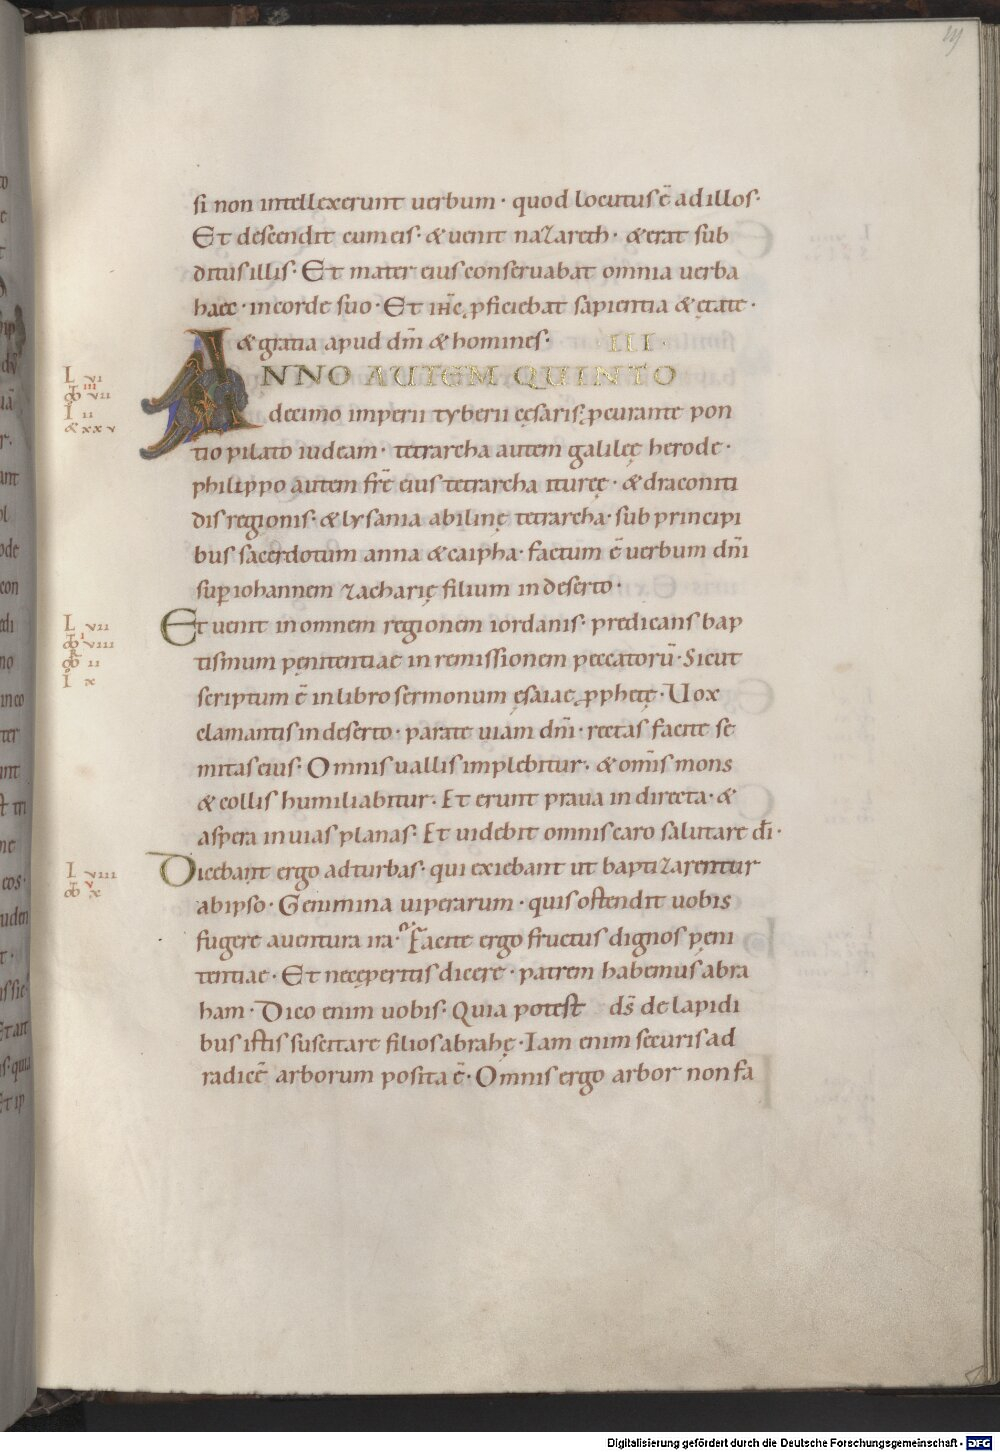 si non intellexerunt uerbum · quod locutus ē ad illos·
Et descendit cum eis · & uenit naZareth · & erat sub
ditus illis · Et mater eius conseruabat omnia uerba
haec · in corde suo · Et ihc̄ ꝓficiebat sapientia & ętate ·
& gratia apud dm̄ & homines · ·III·
ANNO AUTEM QUINTO
decimo imperii tyberii cęsaris · ꝓcurante pon
tio pilato iudeam · tetrarcha autem galileę herode ·
philippo autem fr̄e eius tetrarcha itureę · & draconiti
dis regionis · & lysania abilinę tetrarcha · sub principi
bus sacerdotum anna & caipha · factum ē uerbum dn̄i
suꝑ iohannem zacharię filium in deserto ·
Et uenit in omnem regionem iordanis · predicans bap
tismum pęnitentiae in remissionem peccatorū · Sicut
scriptum ē in libro sermonum ęsaiae ꝓphetę · Uox
clamantis in deserto · parate uiam dn̄i · rectas facite se
mitas eius · Omnis uallis implebitur · & om̄is mons
& collis humiliabitur · Et erunt praua in directa · &
aspera in uias planas · Et uidebit omnis caro salutare dī ·
Dicebant ergo ad turbas · qui exiebant ut baptiZarentur
ab ipso · Genimina uiperarum · quis ostendit uobis
fugere a uentura ira · Facite ergo fructus dignos pęni
tentiae · Et ne cęperitis dicere · patrem habemus abra
ham · Dico enim uobis · Quia potest ds̄ de lapidi
bus istis suscitare filios abrahę · Iam enim securis ad
radicē arborum posita ē · Omnis ergo arbor non fa
L vi
iii
vii
I ii
& xxv
L vii
i
viii
ii
I x
L viii
v
x
Digitalisierung gefördert durch die Deutsche Forschungsgemeinschaft - DFG